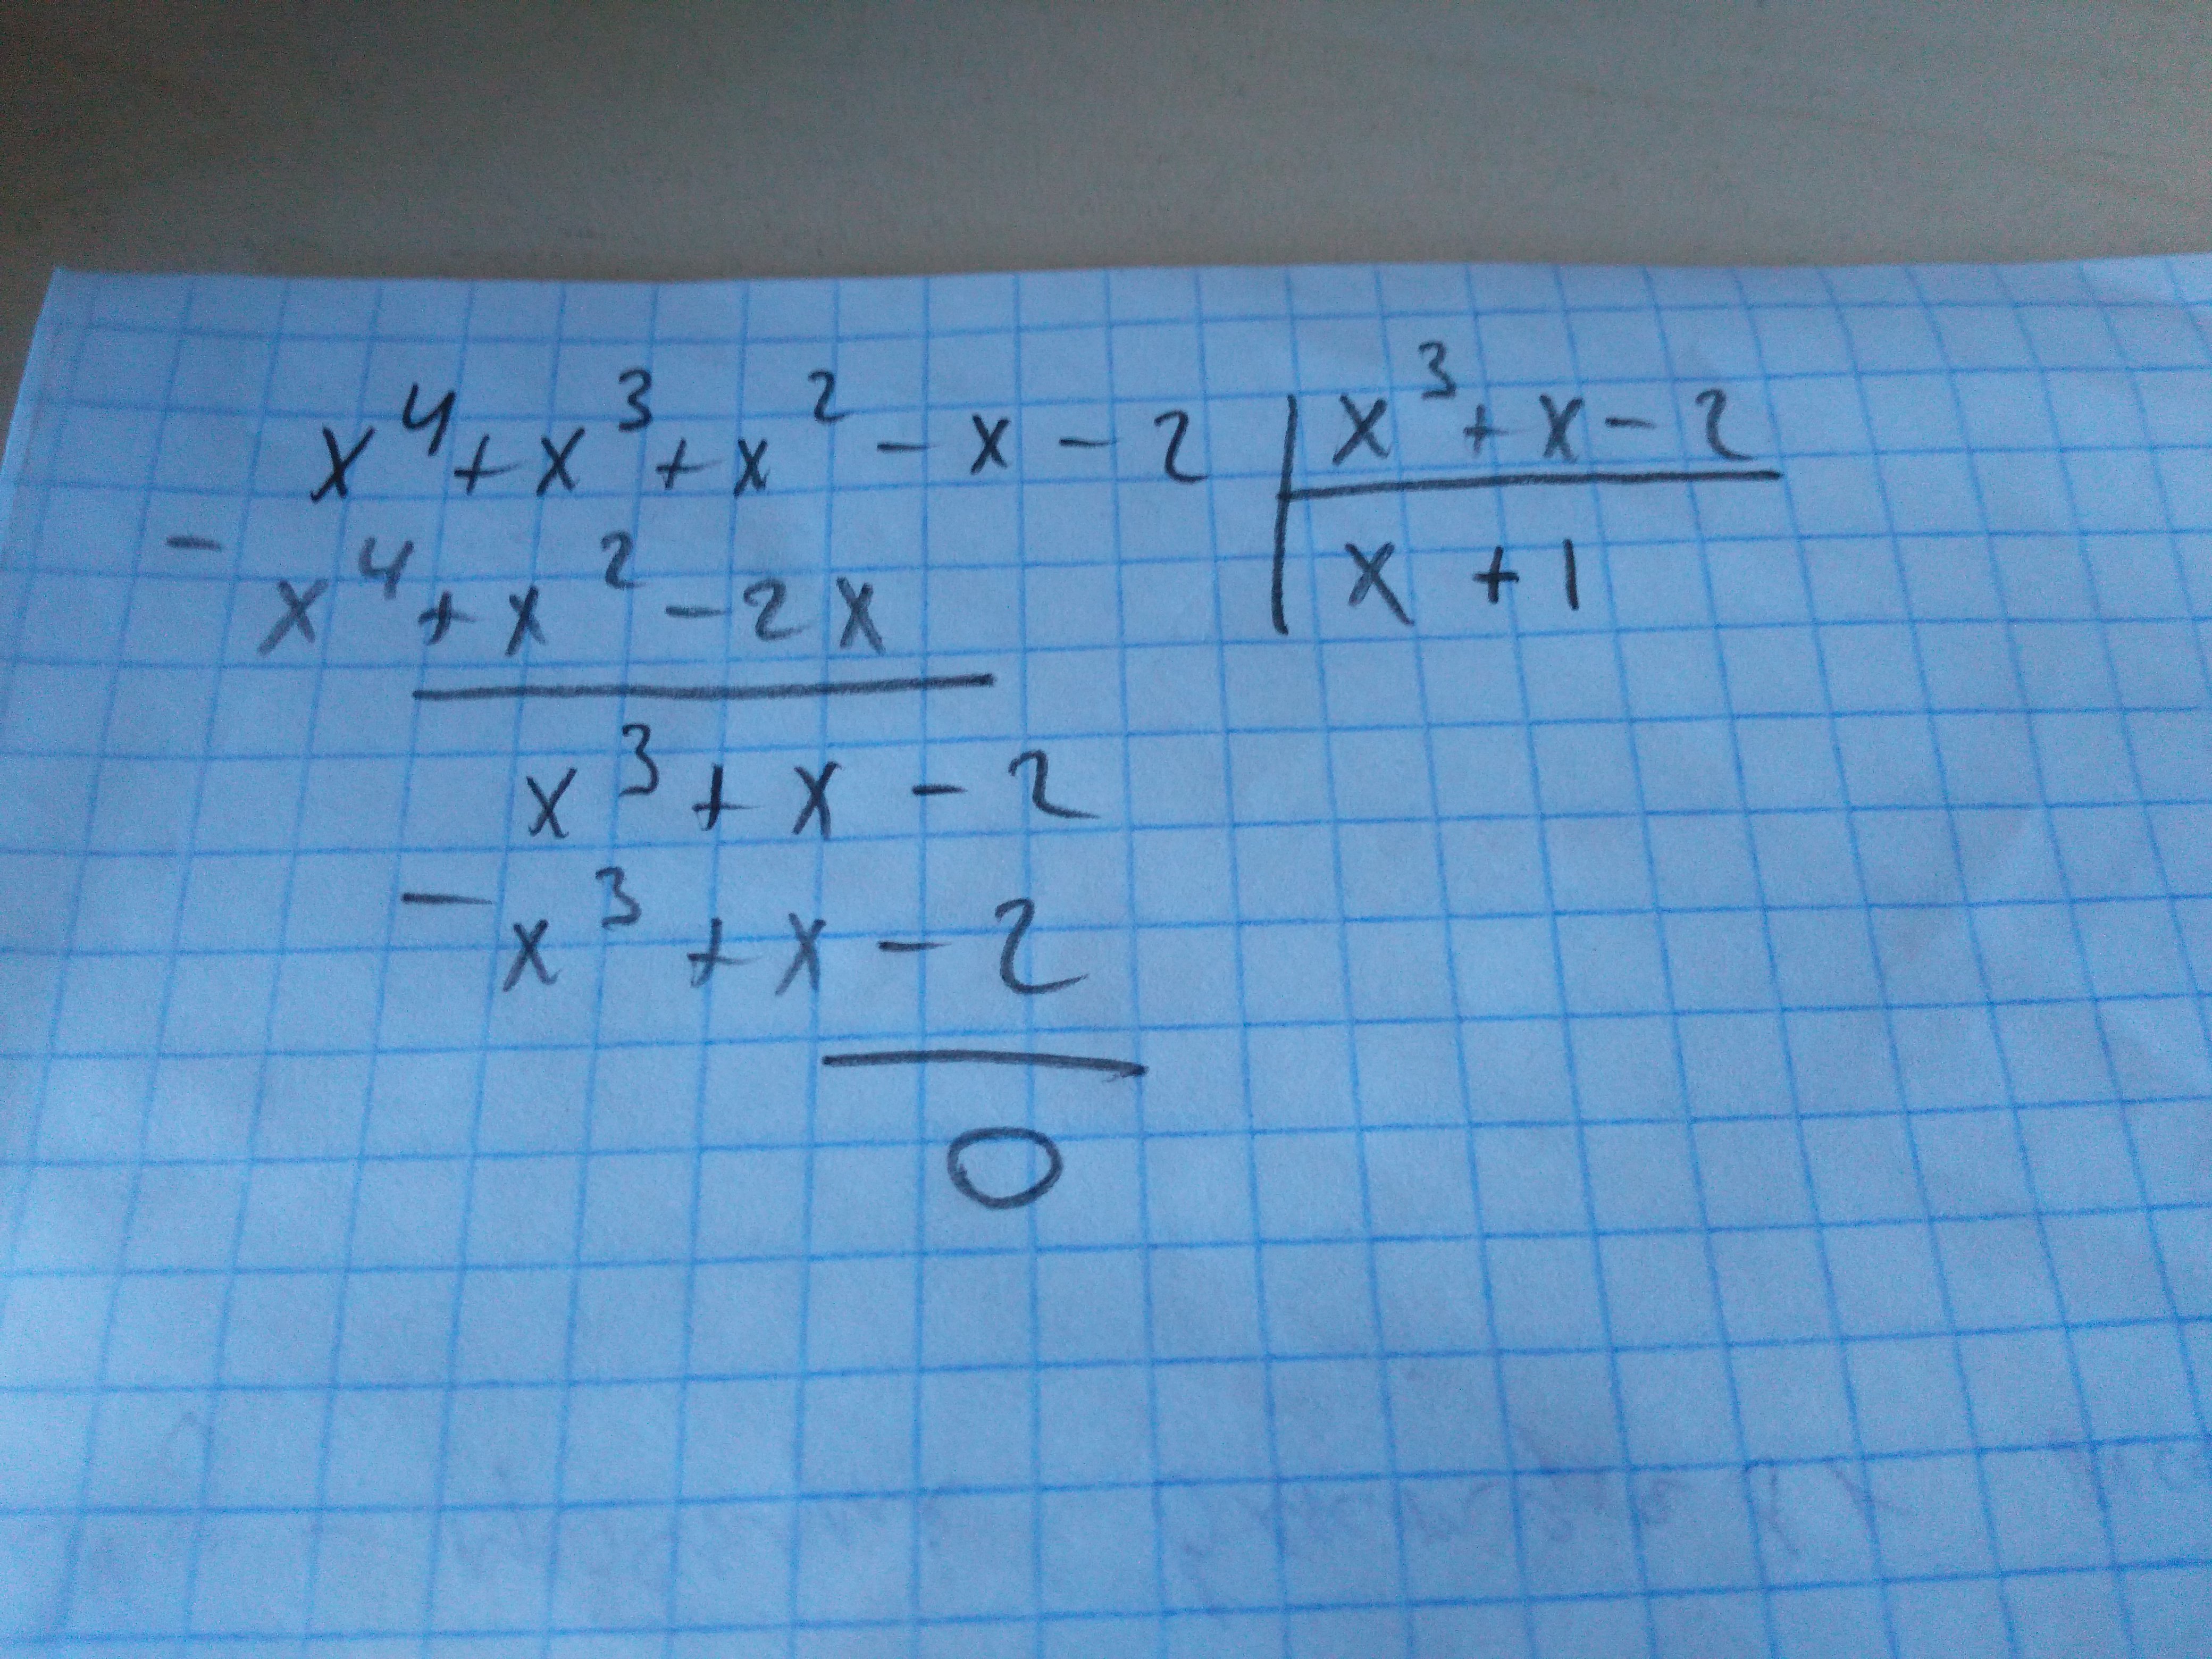 x⁴+x³+x²-x-2 | x³+x-2
- x⁴+x²-2x | x+1
x³+x-2
- x³+x-2
0